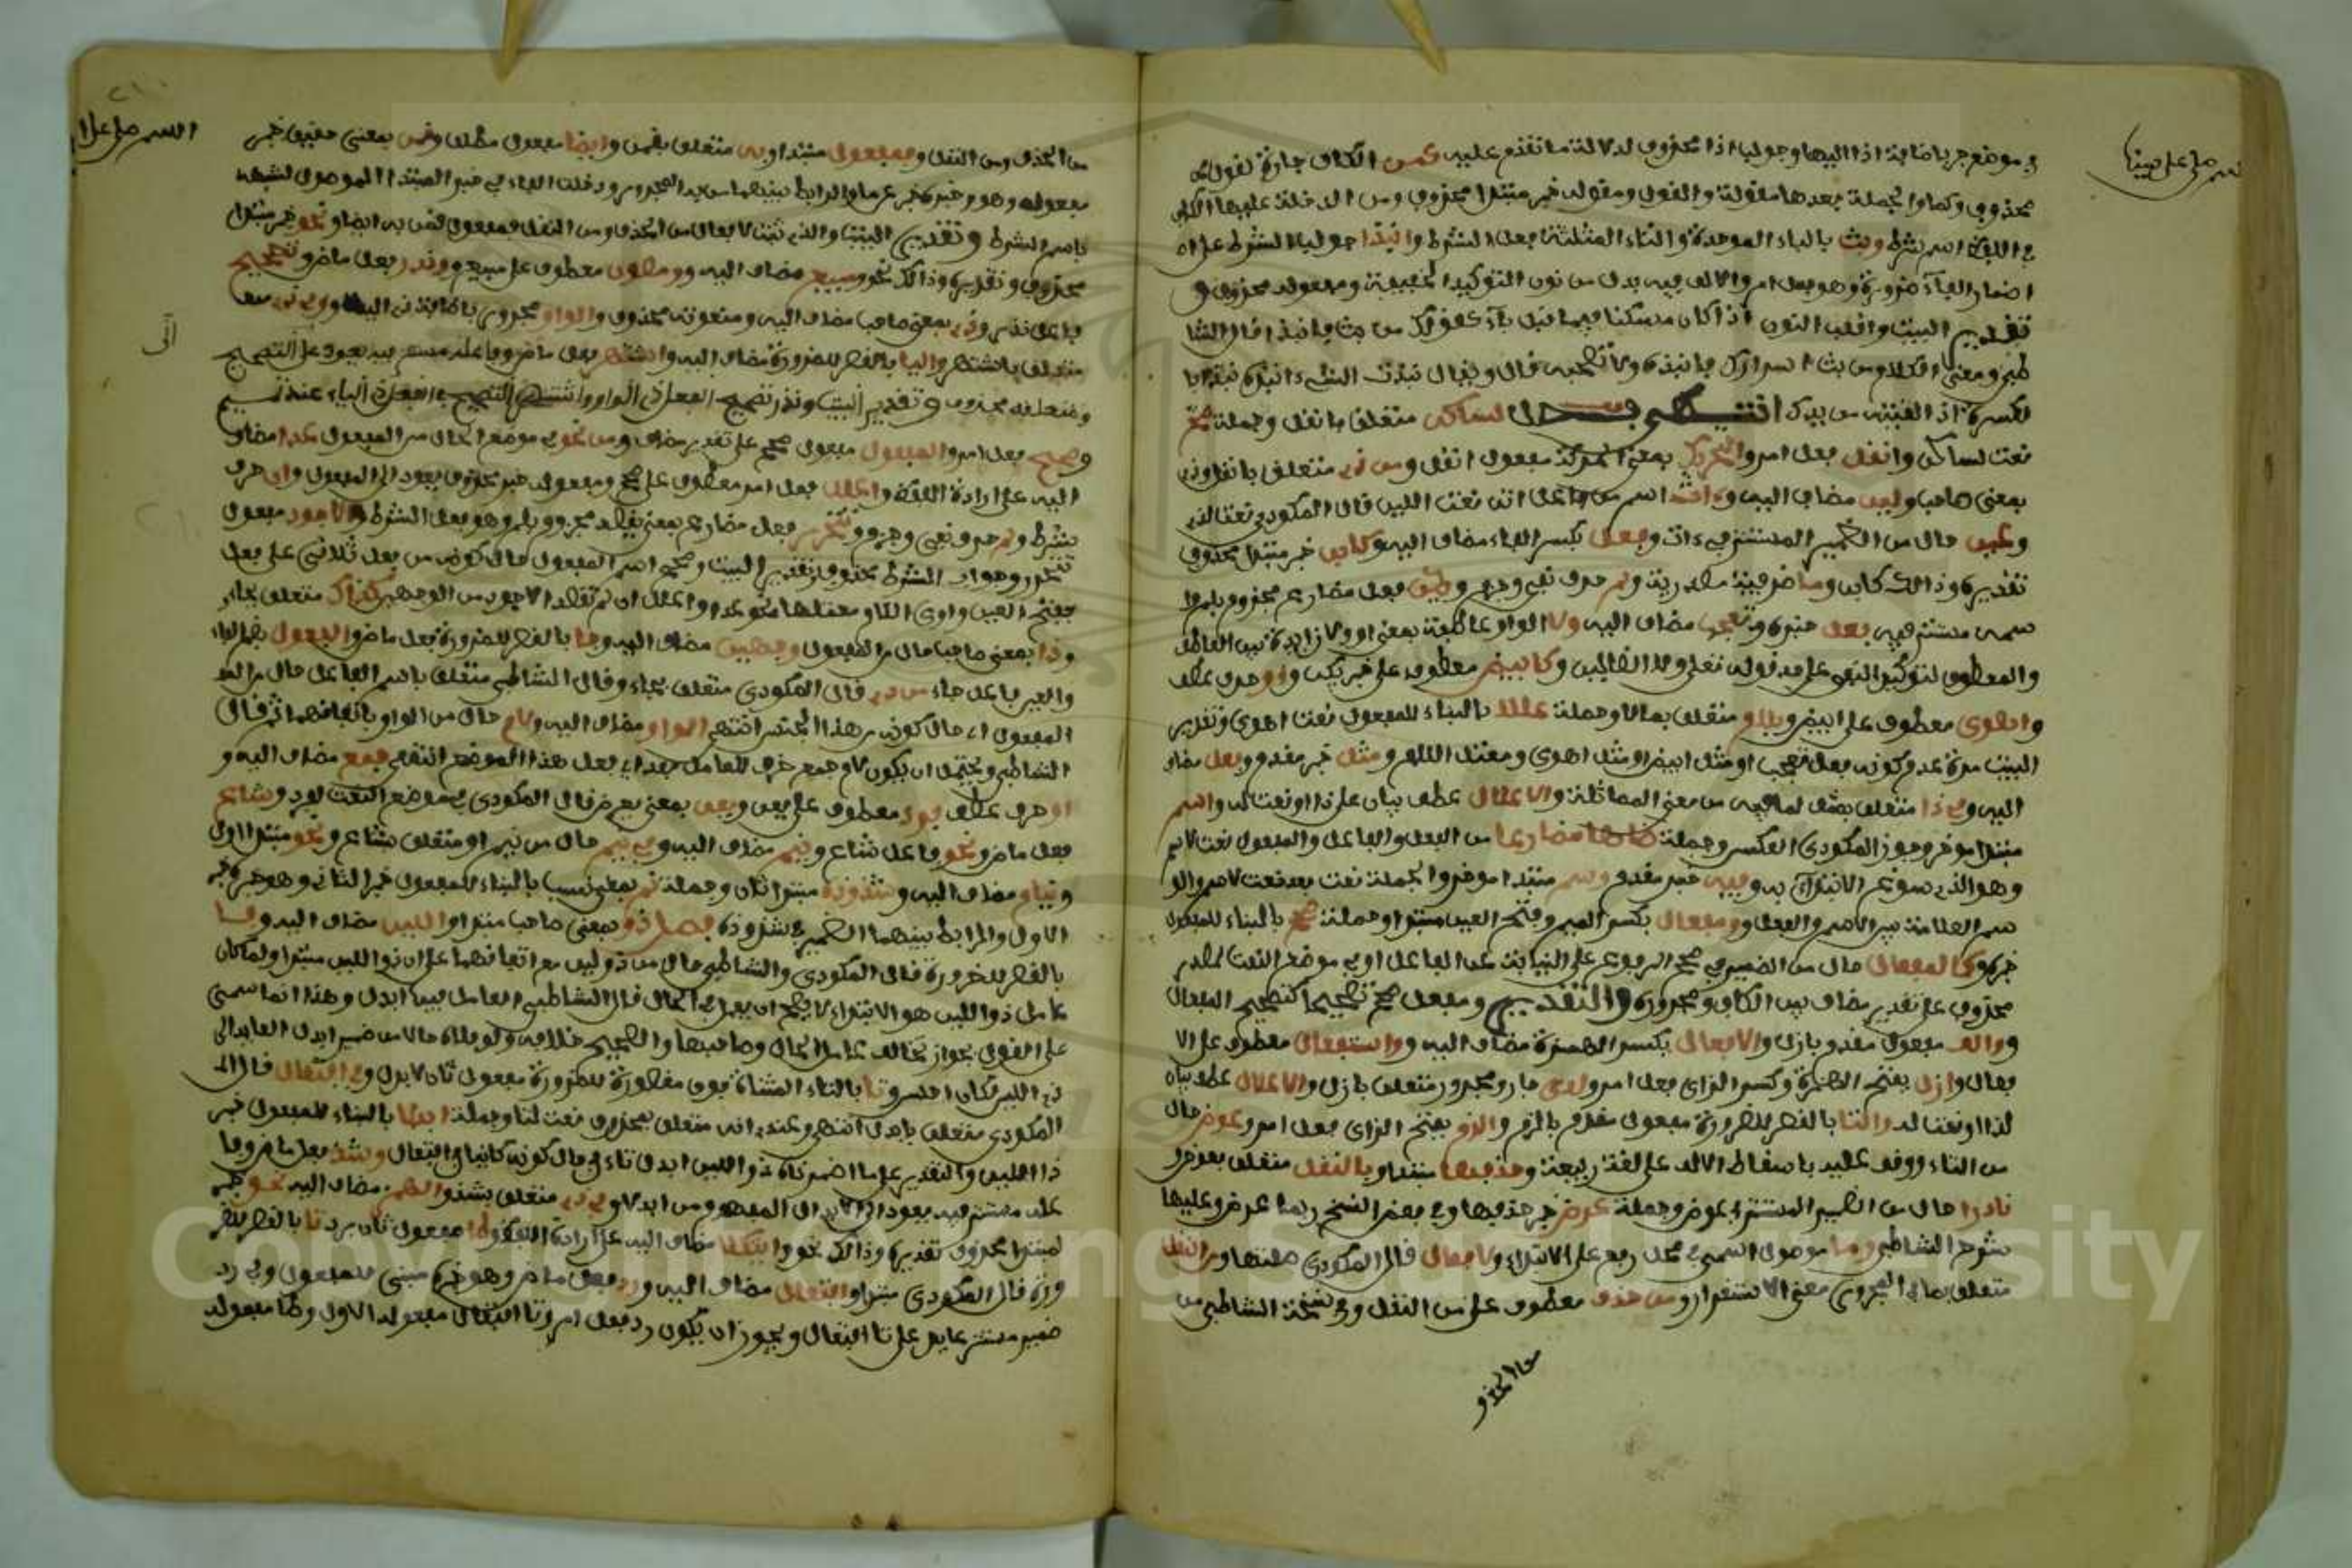 اللهم صل على نبينا
في موضع جر باضافة اذا اليها وجوابها اذا محذوف لدلالة ما تقدم عليه كمن الكاف جارة لقول
محذوف وكما والجملة بعدها مقولة والقول ومقوله خبر مبتدا محذوف ومن الداخلة عليها الكاف
في اللفظ اسم شرط وبث بالباء الموحدة والثاء المثلثة فعل الشرط وانبذا جواب الشرط على
اضمار الفاء ضرورة وهو فعل امر والالف فيه بدل من نون التوكيد الخفيفة ومفعوله محذوف و
تقدير البيت واقلب النون اذا كان مسكنا ميما قبل باء كقولك من بث فانبذ قال الشا
طبي ومعنى الكلام من بث اسرارك فانبذه ولا تصحبه قال ويقال نبذت الشيء انبذه نبذا
لكسرة اذا القيته من يدك انتهى فصل لساكن متعلق بانقل وجملة صح
نعت لساكن وانقل فعل امر والتحريك بمعنى الحركة مفعول انقل ومن ذي متعلق بانقل وذي
بمعنى صاحب ولين مضاف اليه وءات اسم فاعل اتى نعت اللين قال المكودي نعت لذي
وعين حال من الضمير المستتر في ءات وفعل بكسر الفاء مضاف اليه وكابن خبر مبتدا محذوف
تقديره وذلك كابن وما ظرفية مصدرية ولم حرف نفي وجزم ويك فعل مضارع مجزوم بلم وا
سمه مستتر فيه فعل خبره وتعجب مضاف اليه ولا الواو عاطفة بمعنى او ولا زايدة بين العاطف
والمعطوف لتوكيد النفي على حد قوله تعلى ولا الضالين وكابيض معطوف على خبر يك واو حرف عطف
واهوى معطوف على ابيض وبلام متعلق بعللا وجملة عللا بالبناء للمفعول نعت اهوى وتقدير
البيت مدة عدم كونه فعل تعجب او مثل ابيض او مثل اهوى ومعتل اللام ومثل خبر مقدم وفعل مضاف
اليه وفي ذا متعلق بمثل لما فيه من معنى المماثلة والاعلال عطف بيان على ذا او نعت له واسم
مبتدا موخر وجوز المكودي العكس وجملة ضاهى مضارعا من الفعل والفاعل والمفعول نعت لاسم
وهو الذي سوغ الابتداء به وفيه خبر مقدم ووسم مبتدا موخر والجملة نعت بعد نعت لاسم والو
سم العلامة بين الاسم والفعل ومفعل بكسر الميم وفتح العين مبتدا وجملة صح بالبناء للمفعول
خبره وكالمفعال حال من الضمير في صحح المرفوع على النيابة عن الفاعل او في موضع النعت لمصدر
محذوف على تقدير مضاف بين الكاف ومجروره والتقدير ومفعل صحح تصحيحا كتصحيح المفعال
والف مفعول مقدم بازل والافعال بكسر الهمزة مضاف اليه واستفعال معطوف على الا
فعال وازل بفتح الهمزة وكسر الزاي فعل امر ولذي جار ومجرور متعلق بازل والاعلال عطف بيان
لذا او نعت له والتا بالقصر للضرورة مفعول مقدم بالزم والزم بفتح الزاي فعل امر وعوض حال
من التاء ووقف عليه باسقاط الالف على لغة ربيعة وحذفها مبتدا وبالنقل متعلق بعرض و
نادرا حال من الضمير المستتر في عرض وجملة عرض خبر حذفها وفي بعض النسخ ربما عرض وعليها
شرح الشاطبي وما موصول اسمي في محل رفع على الابتداء ولافعال قال المكودي صلتها ومن النقل
متعلق بما في المجرور من معنى الاستقرار ومن حذف معطوف على من النقل وفي نسخة الشاطبي من
من الحذف و
اللهم صل على
من الحذف ومن النقل وفمفعول مبتدا وبه متعلق بقمن وايضا مفعول مطلق وقمن بمعنى حقيق خبر
مفعول وهو وخبره خبر عن ما والرابط بينهما من به المجرور ودخلت الفاء في خبر المبتدا الموصول لشبهه
باسم الشرط وتقدير البيت والذي ثبت لافعال من الحذف ومن النقل فمفعول قمن به ايضا ونحو خبر مبتدا
محذوف وتقديره وذالك نحو ومبيع مضاف اليه ومصون معطوف على مبيع وندر فعل ماض وتصحيح
فاعل ندر وذي بمعنى صاحب مضاف اليه ومنعوته محذوف والواو مجرور باضافة ذي اليها وفي ذي اليا
متعلق باشتهر واليا بالقصر للضرورة مضاف اليه واشتهر فعل ماض وفاعله مستتر فيه يعود على التصحيح
ومتعلقه محذوف وتقدير البيت وندر تصحيح الفعل ذي الواو واشتهر التصحيح في الفعل ذي الياء عند تميم
وصحح فعل امر والمفعول مفعول صحح على تقدير مضاف ومن نحو في موضع الحال من المفعول عدا مضاف
اليه على ارادة اللفظ واعلل فعل امر معطوف على صحح ومفعوله ضمير محذوف يعود الى المفعول وان حرف
شرط ولم حرف نفي وجزم وتتحر فعل مضارع بمعنى تقصد مجزوم بلم وهو فعل الشرط والاجود مفعول
تتحر وجواب الشرط محذوف وتقدير البيت وصحح اسم المفعول حال كونه من فعل ثلاثي على فعل
بفتح العين واوي اللام معتلها نحو عدا واعلل ان لم تقصد الاجود من الوجهين كذاك متعلق بجاء
وذا بمعنى صاحب حال من الفعول ووجهين مضاف اليه وجا بالقصر للضرورة فعل ماض والفعول بضم الفاء
والعين فاعل جاء من ذي قال المكودي متعلق بجاء وقال الشاطبي متعلق باسم الفاعل حال من الفعول
المفعول اي حال كونه من هذا الجنس انتهى الواو مضاف اليه ولام حال من الواو باتفاقهما ثم قال
الشاطبي ويحتمل ان يكون لام جمع ظرف للعامل جعل هذا الموضع انتهى جمع مضاف اليه و
او حرف عطف فرد معطوف على يعن ويعن بمعنى يعرض قال المكودي في موضع النعت لفرد وشاع
فعل ماض ونحو فاعل شاع ونيم مضاف اليه وفي نوم حال من نيم او متعلق بشاع ونحو مبتدا اول
ونيام مضاف اليه وشذوذه مبتدا ثان وجملة نمي بمعنى نسب بالبناء للمفعول خبر الثاني وهو وخبره خبر
الاول والرابط بينهما الضمير في شذوذه فصل ذو بمعنى صاحب مبتدا واللين مضاف اليه وفا
بالقصر للضرورة قال المكودي والشاطبي حال من ذو لين مع اتفاقهما على ان ذو اللين مبتدا ولما كان
عامل ذو اللين هو الابتداء لا يصح ان يعمل في الحال قال الشاطبي العامل فيها ابدل وهذا انما يتمشى
على القول بجواز تخالف عامل الحال وصاحبها والصحيح خلافه ولو جعلاه حالا من ضمير ابدل العايد الى
ذي اللين لكان احسن وتا بالتاء المثناة فوق مقصورة للضرورة مفعول ثان لابدل وفي افتعال قال
المكودي متعلق بابدل انتهى وعندي انه متعلق بمحذوف نعت لتا وجملة ابدلا بالبناء للمفعول خبر
ذا اللين والتقدير على ما اخترناه ذو اللين ابدل تاء في حال كونه كاينا في افتعال وشذ فعل ماض وفا
عله مستتر فيه يعود الى الابدال المفهوم من ابدلا وفي ذي متعلق بشذ والهمز مضاف اليه نحو خبر
لمبتدا محذوف تقديره وذالك نحو وايتكلا مضاف اليه على ارادة اللفظ وطا مفعول ثان برد تا بالقصر للضر
ورة قال المكودي مبتدا وافتعال مضاف اليه ورد فعل ماض وهو خبره مبني للمفعول وفي رد
ضمير مستتر عايد على تا افتعال ويجوز ان يكون رد فعل امر وتا افتعال مفعوله الاول وطا مفعوله